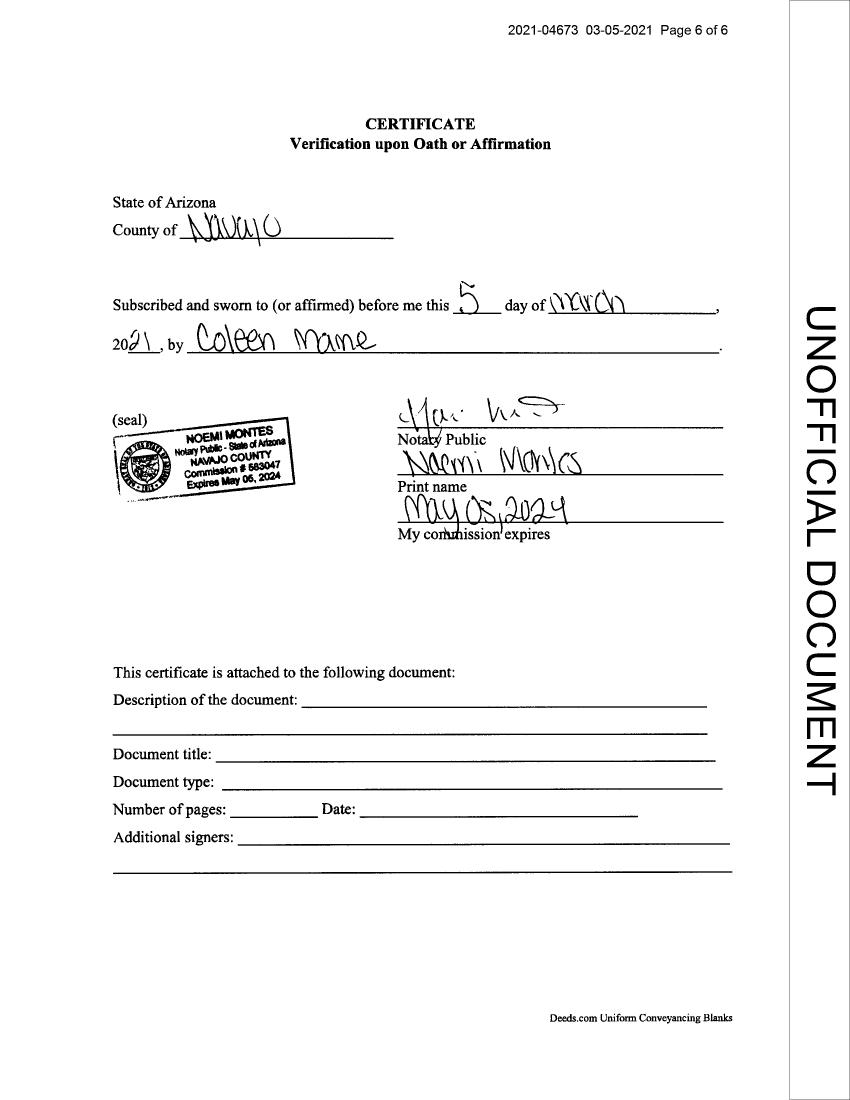 2021-04673 03-05-2021 Page 6 of 6
CERTIFICATE
Verification upon Oath or Affirmation
State of Arizona
County of Navajo
Subscribed and sworn to (or affirmed) before me this 5 day of March,
2021, by Coleen Mame.
(seal)
NOEMI MONTES
Notary Public - State of Arizona
NAVAJO COUNTY
Commission # 583047
Expires May 05, 2024
Notary Public
Noemi Montes
Print name
May 05, 2024
My commission expires
This certificate is attached to the following document:
Description of the document:
Document title:
Document type:
Number of pages: Date:
Additional signers:
Deeds.com Uniform Conveyancing Blanks
UNOFFICIAL DOCUMENT